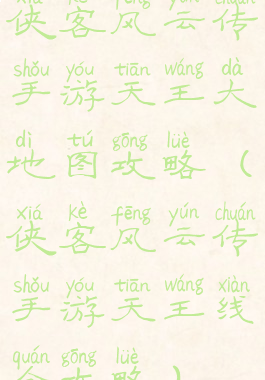 xiá kè fēng yún chuán
侠客风云传
shǒu yóu tiān wáng dà
手游天王大
dì tú gōng lüè
地图攻略（
xiá kè fēng yún chuán
侠客风云传
shǒu yóu tiān wáng xiàn
手游天王线
quán gōng lüè
全攻略）